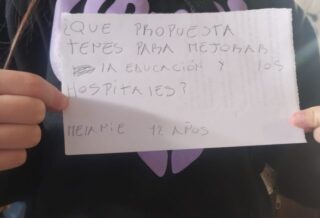 ¿QUE PROPUESTA
TENES PARA MEJORAR
LA EDUCACIÓN Y LOS
HOSPITALES?
12 AÑOS